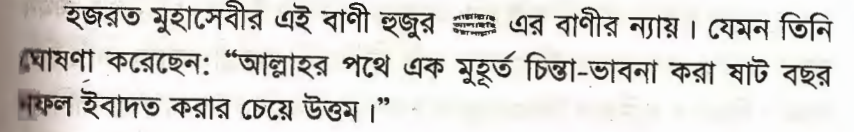 হজরত মুহাসেবীর এই বাণী হুজুর ﷺ এর বাণীর ন্যায়। যেমন তিনি
ঘোষণা করেছেন: “আল্লাহর পথে এক মুহূর্ত চিন্তা-ভাবনা করা ষাট বছর
নফল ইবাদত করার চেয়ে উত্তম।”